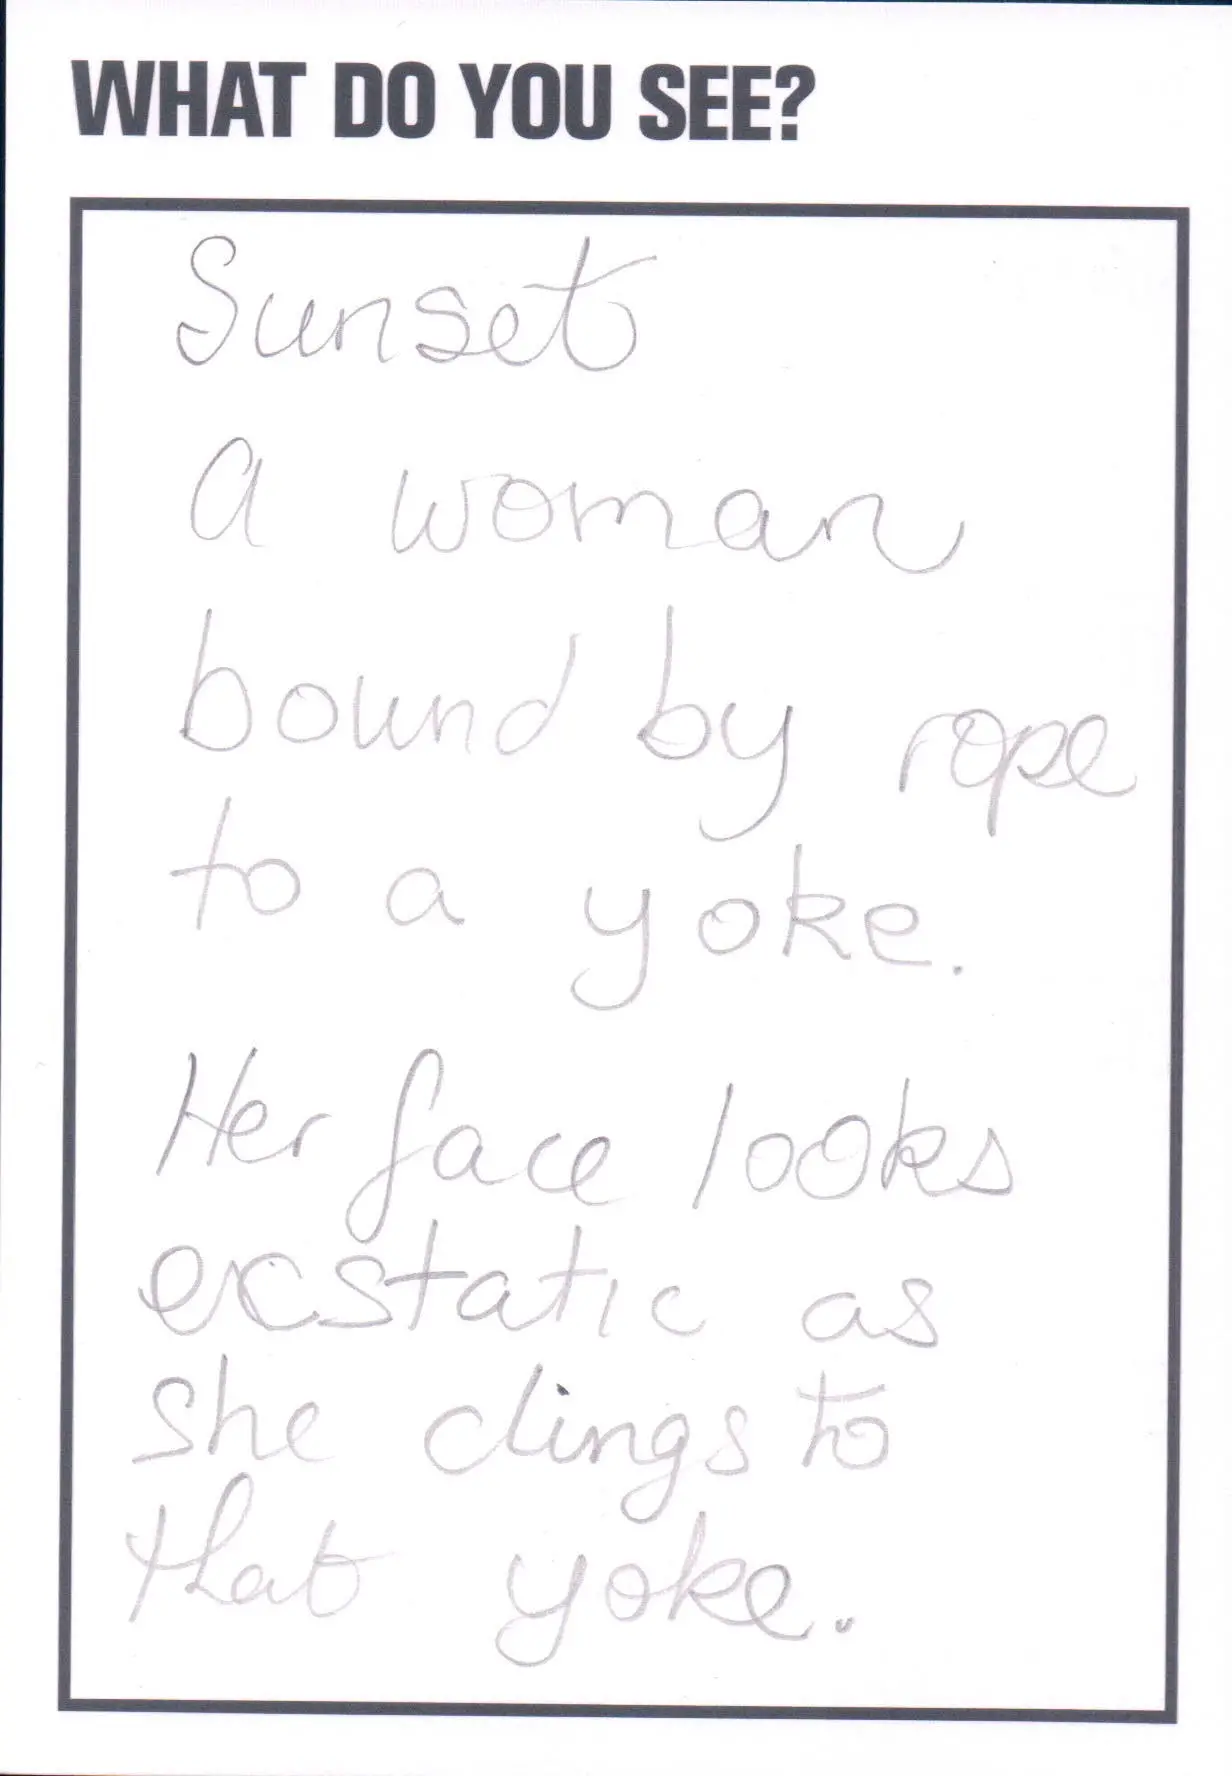 WHAT DO YOU SEE?
Sunset
A woman
bound by rope
to a yoke.
Her face looks
ecstatic as
she clings to
that yoke.